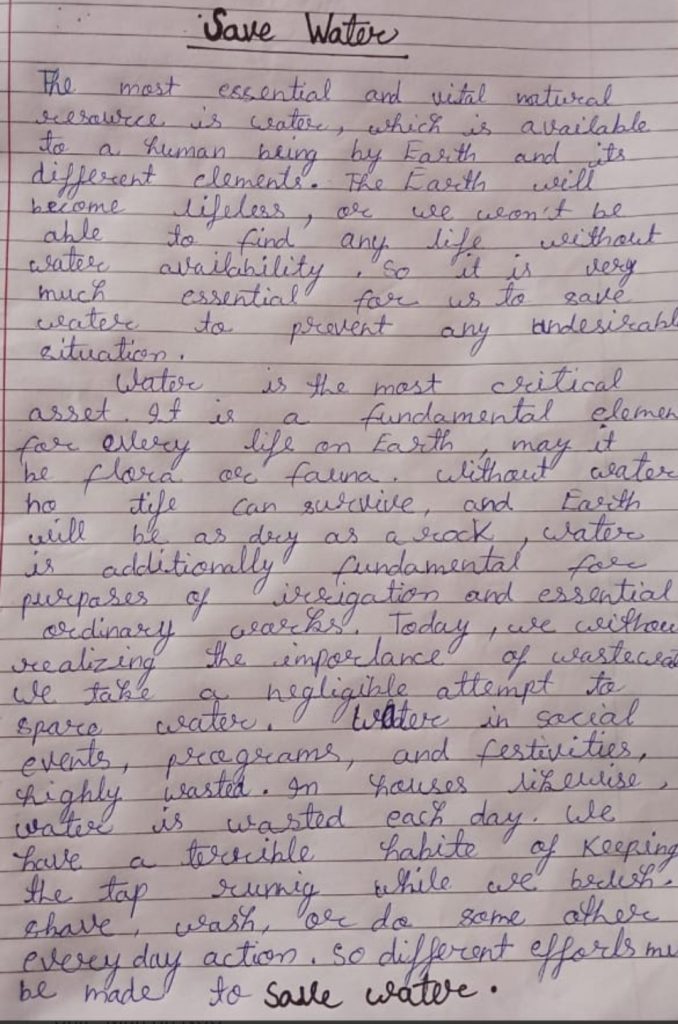 Save Water
The most essential and vital natural
resource is water, which is available
to a human being by Earth and its
different elements. The Earth will
become lifeless, or we won't be
able to find any life without
water availability. So it is very
much essential for us to save
water to prevent any undesirabl
situation.
Water is the most critical
asset. It is a fundamental elemen
for every life on Earth, may it
be flora or fauna. without water
no life can survive, and Earth
will be as dry as a rock, water
is additionally fundamental for
purpases of irrigation and essential
ordinary works. Today, we withou
realizing the importance of wastewat
We take a negligible attempt to
spare water. Water in social
events, programs, and festivities,
highly wasted. In houses likewise,
water is wasted each day. We
have a terrible habite of Keeping
the tap runnig while we brush.
shave, wash, or do some other
every day action. So different efforts mu
be made to Save water.